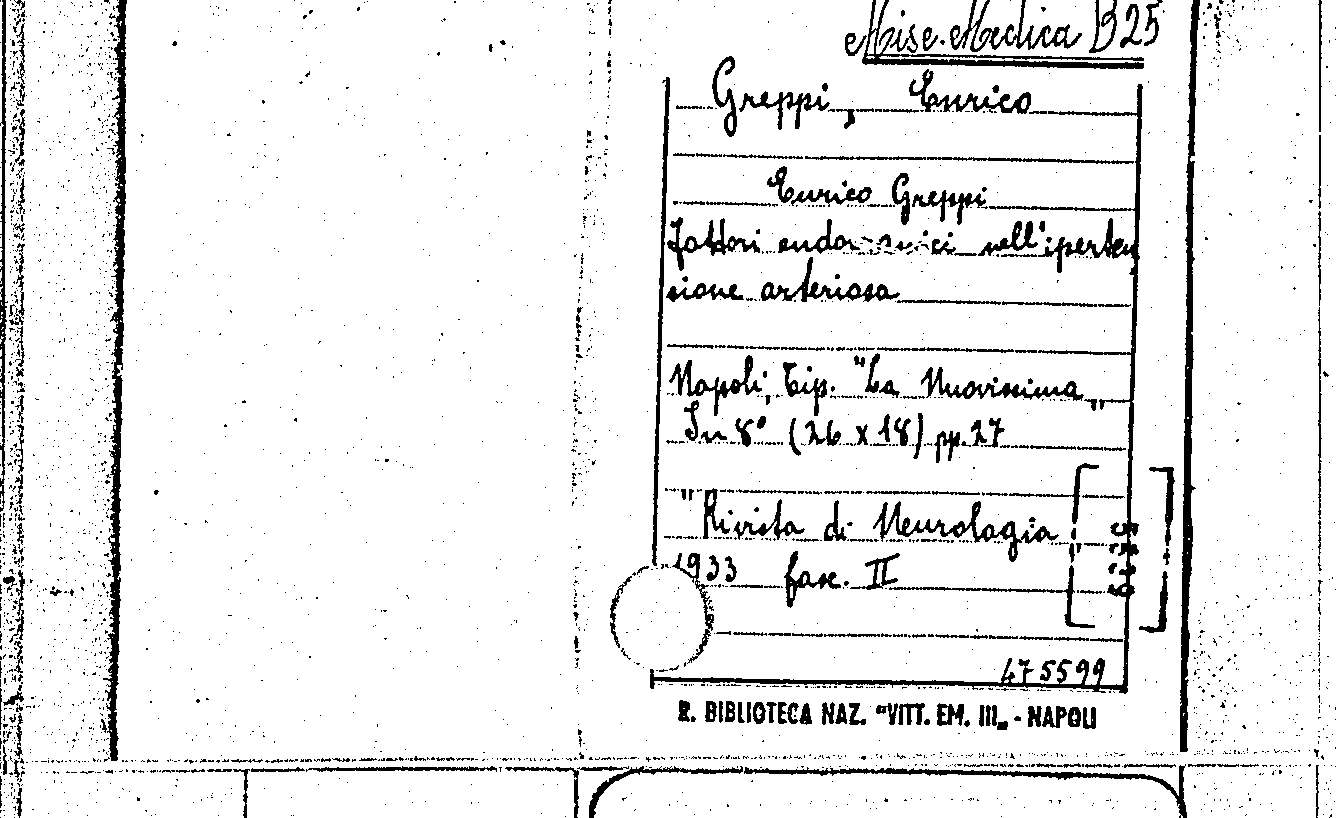 Misc. Medica B 25
Greppi, Enrico
Enrico Greppi
Fattori nell'iperten
sione arteriosa
Napoli, Tip. "La Nuovissima"
In 8° (26 x 18) pp. 27
"Rivista di Neurologia
1933 fasc. II
475599
R. BIBLIOTECA NAZ. "VITT. EM. III„ - NAPOLI